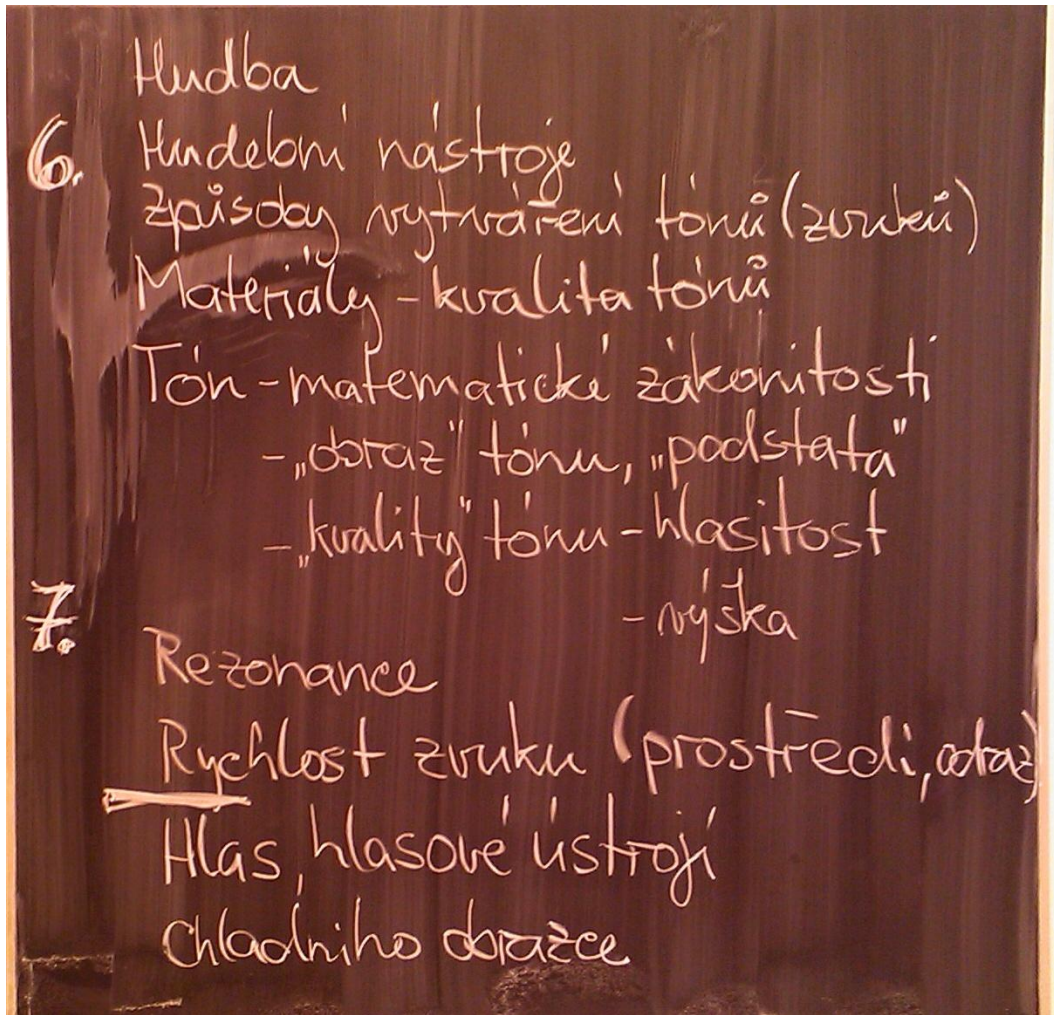 Hudba
6. Hudební nástroje
způsoby vytváření tónů (zvuků)
Materiály - kvalita tónů
Tón - matematické zákonitosti
- „obraz" tónu, „podstata"
- „kvality" tónu - hlasitost
- výška
7.
Rezonance
Rychlost zvuku (prostředí, odraz)
Hlas, hlasové ústrojí
Chladniho obrazce